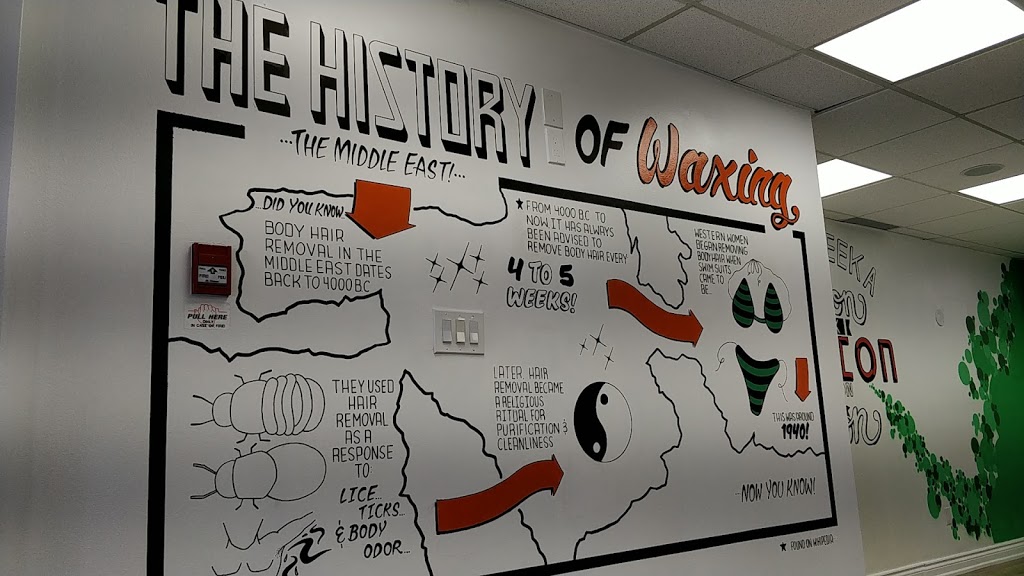 THE HISTORY OF Waxing
...THE MIDDLE EAST!...
...DID YOU KNOW...
BODY HAIR
REMOVAL IN THE
MIDDLE EAST DATES
BACK TO 4000 BC
PULL HERE
ONLY!
IN CASE OF FIRE!
THEY USED
HAIR
REMOVAL
AS A
RESPONSE
TO
LICE...
TICKS...
& BODY
ODOR...
LATER, HAIR
REMOVAL BECAME
A RELIGIOUS
RITUAL FOR
PURIFICATION &
CLEANLINESS
★ FROM 4000 BC TO
NOW IT HAS ALWAYS
BEEN ADVISED TO
REMOVE BODY HAIR EVERY
4 TO 5
WEEKS!
WESTERN WOMEN
BEGAN REMOVING
BODY HAIR WHEN
SWIM SUITS
CAME TO
BE.
THIS WAS AROUND
1940!
...NOW YOU KNOW!
★ FOUND ON WIKIPEDIA
EEK A